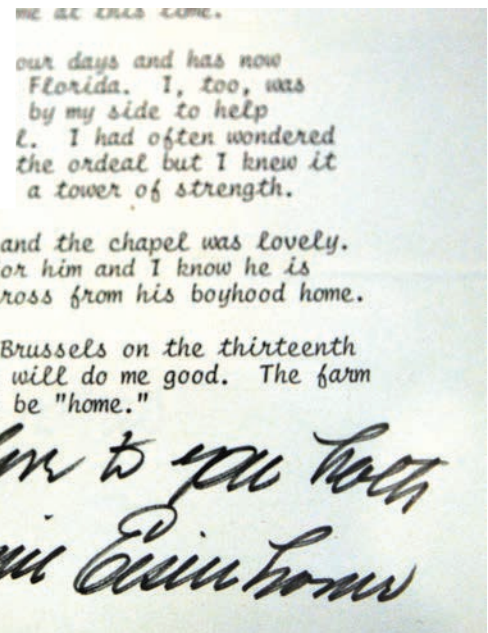 me at this time.
our days and has now
Florida. I, too, was
by my side to help
l. I had often wondered
the ordeal but I knew it
a tower of strength.
and the chapel was lovely.
or him and I know he is
ross from his boyhood home.
Brussels on the thirteenth
will do me good. The farm
be "home."
to you both
Eisenhower